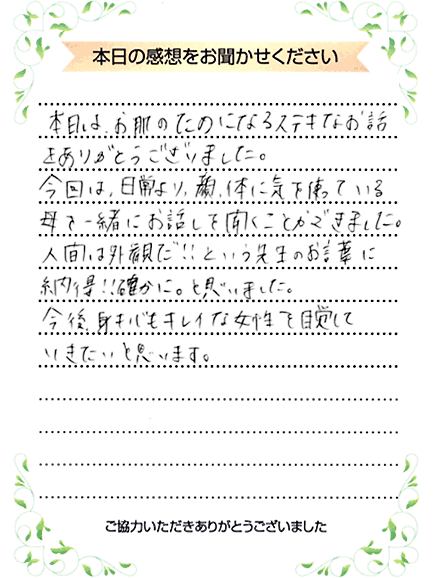 本日の感想をお聞かせください
本日は、お肌のためになるステキなお話
をありがとうございました。
今回は、日常より、顔、体に気を使っている
母と一緒にお話しを聞くことができました。
人間は外観だ!!という先生のお言葉に
納得!!確かに。と思いました。
今後、身も心もキレイな女性を目覚して
いきたいと思います。
ご協力いただきありがとうございました